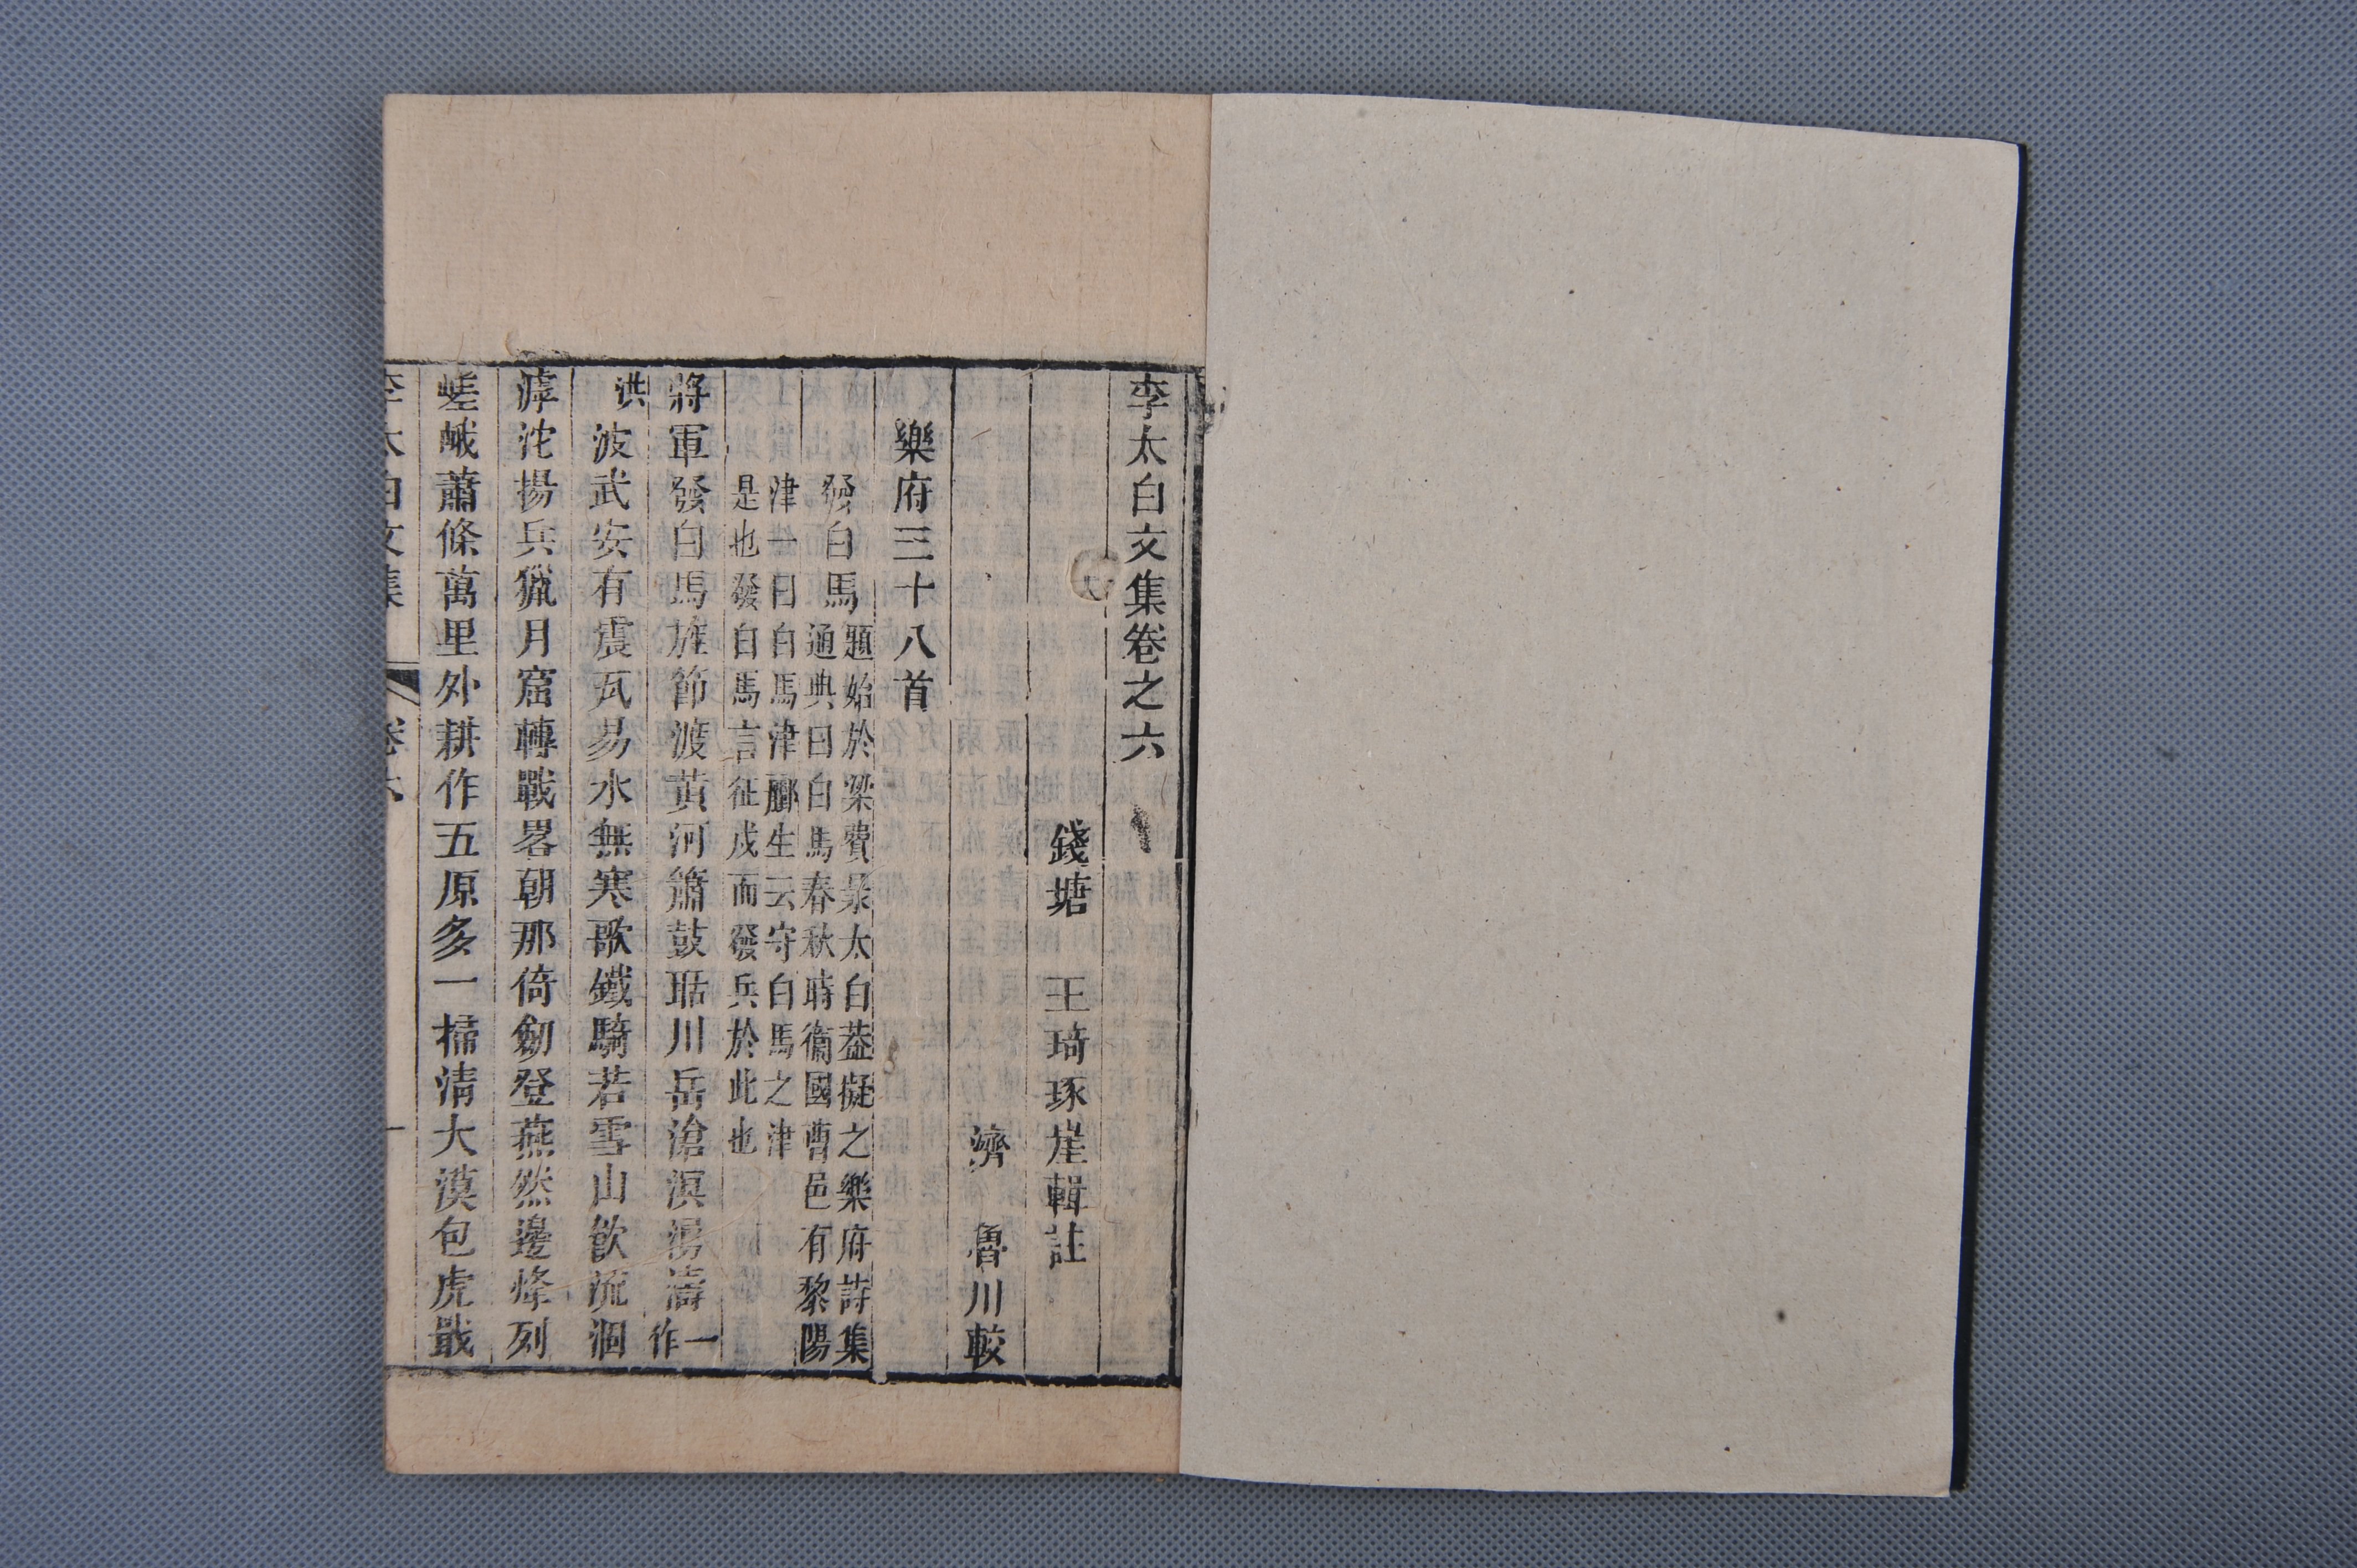 李太白文集卷之六
錢塘 王琦琢崖輯註
濟 魯川較
樂府三十八首
發白馬
題始於梁費昶太白葢擬之樂府詩集
通典曰白馬春秋時衞國曹邑有黎陽
津一曰白馬津酈生云守白馬之津
是也發白馬言征戍而發兵於此也
將軍發白馬旌節渡黃河簫鼓聒川岳滄溟湧濤一作
洪波武安有震瓦易水無寒歌鐵騎若雪山飲流涸
滹沱揚兵獵月窟轉戰畧朝那倚劒登燕然邊烽列
嵯峨蕭條萬里外耕作五原多一掃清大漠包虎戢
李太白文集 卷六 一